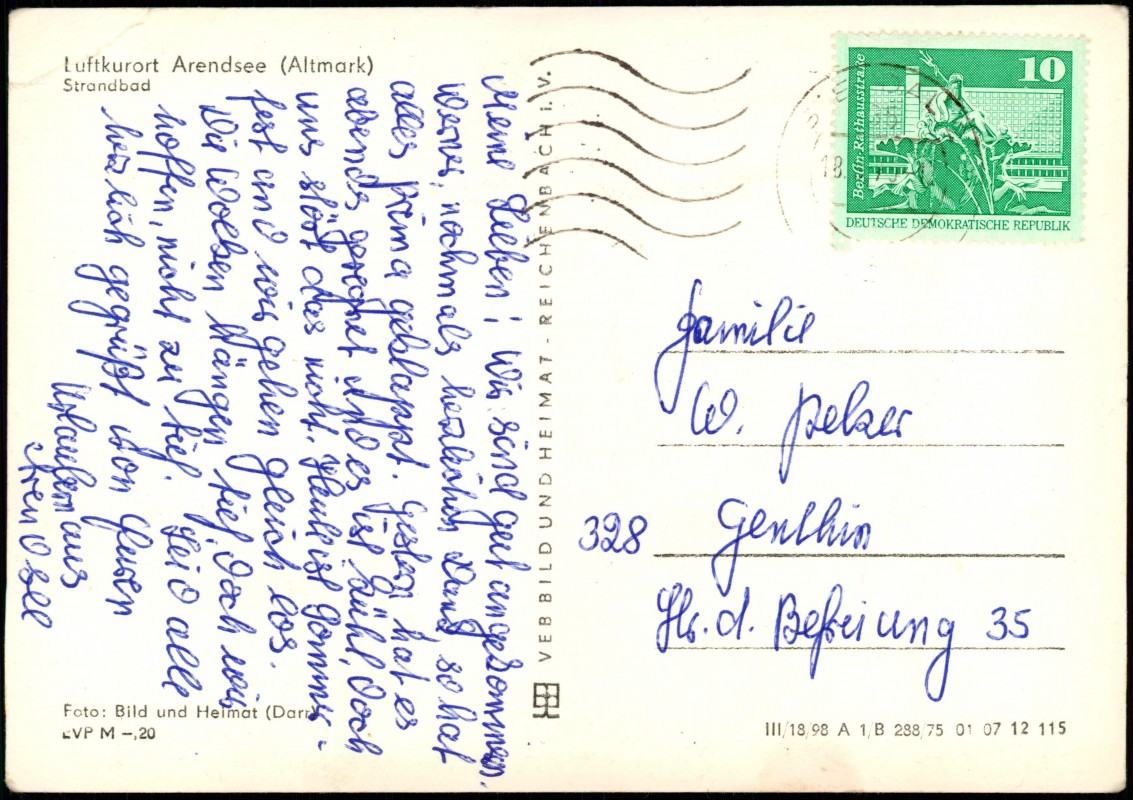 Luftkurort Arendsee (Altmark)
Strandbad
Meine Lieben! Wir sind gut angekommen.
Werner, nochmals herzlichen Dank so hat
alles prima geklappt. Gestern hat es
abends geregnet und es ist kühl, doch
uns stört das nicht. Heut ist Sommer-
fest und wir gehen gleich los.
Die Wolken hängen tief, doch wir
hoffen, nicht zu tief. Seid alle
herzlich gegrüßt von Euren
Urlaubern aus
Arendsee
Foto: Bild und Heimat (Darr)
EVP M –,20
VEB BILD UND HEIMAT - REICHENBACH i. V.
10
Berlin-Rathausstraße
DEUTSCHE DEMOKRATISCHE REPUBLIK
18.
Familie
W. Pelzer
328 Genthin
Str. d. Befreiung 35
III/18/98 A 1/B 288/75 01 07 12 115